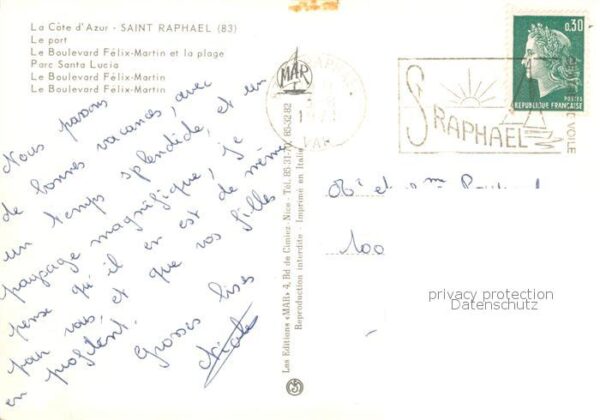 La Côte d'Azur - SAINT RAPHAEL (83)
Le port
Le Boulevard Félix-Martin et la plage
Parc Santa Lucia
Le Boulevard Félix-Martin
Le Boulevard Félix-Martin
Nous passons
de bonnes vacances, avec
un temps splendide, et un
paysage magnifique, je
pense qu'il en est de même
pour vous, et que vos filles
en profitent.
Grosses bises
Nicole
MAR
Les Editions «MAR» 4, Bd de Cimiez, Nice - Tél. 85-31-70, 85-32.82
Reproduction interdite - Imprimé en Italie
VAR
S RAPHAEL
VOILE
0,30
POSTES
REPUBLIQUE FRANÇAISE
et
100
privacy protection
Datenschutz